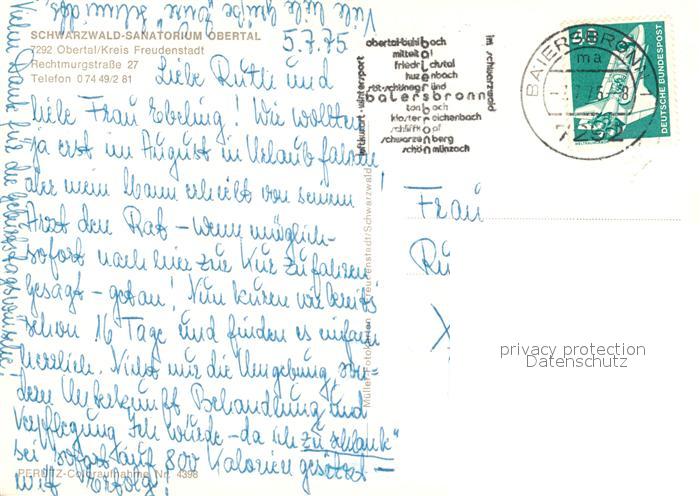 SCHWARZWALD-SANATORIUM OBERTAL
7292 Obertal/Kreis Freudenstadt
Rechtmurgstraße 27
Telefon 0 74 49/2 81
5.7.75
Liebe Ruth und
liebe Frau Ebeling! Wir wollten
ja erst im August in Urlaub fahren
aber mein Mann erhielt von seinem
Arzt den Rat – wenn möglich –
sofort nach hier zur Kur zu fahren
gesagt – getan! Nun kuren wir bereits
schon 16 Tage und finden es einfach
herrlich. Nicht nur die Umgebung, son-
dern Unterkunft Behandlung und
Verpflegung. Ich wurde – da ich „zu schlank"
sei sofort auf 800 Kalorien gesetzt –
mit Erfolg!
Vielen Dank für die Geburtstagswünsche!
Viele liebe Grüße
PERLUTZ-Coloraufnahme Nr. 4398
Müller-Fotokarten Freudenstadt/Schwarzwald
luftkurort · wintersport
im schwarzwald
obertal-buhlbach
mitteltal
friedrichstal
huzenbach
röt-schönegründ
baiersbronn
tonbach
kloster reichenbach
schliffkopf
schwarzenberg
schönmünzach
BAIERSBRONN
ma
7292
DEUTSCHE BUNDESPOST
Frau
Rü
privacy protection
Datenschutz